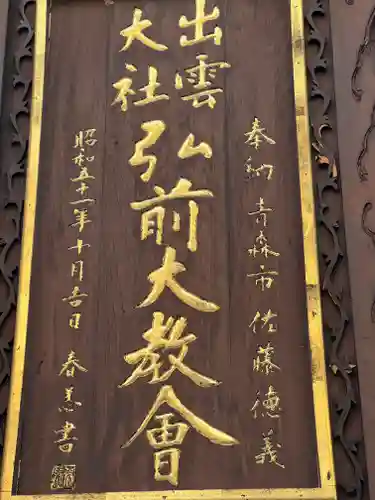 奉納 青森市 佐藤徳義
出雲
大社
弘前大教会
昭和五十一年十月吉日 春善書